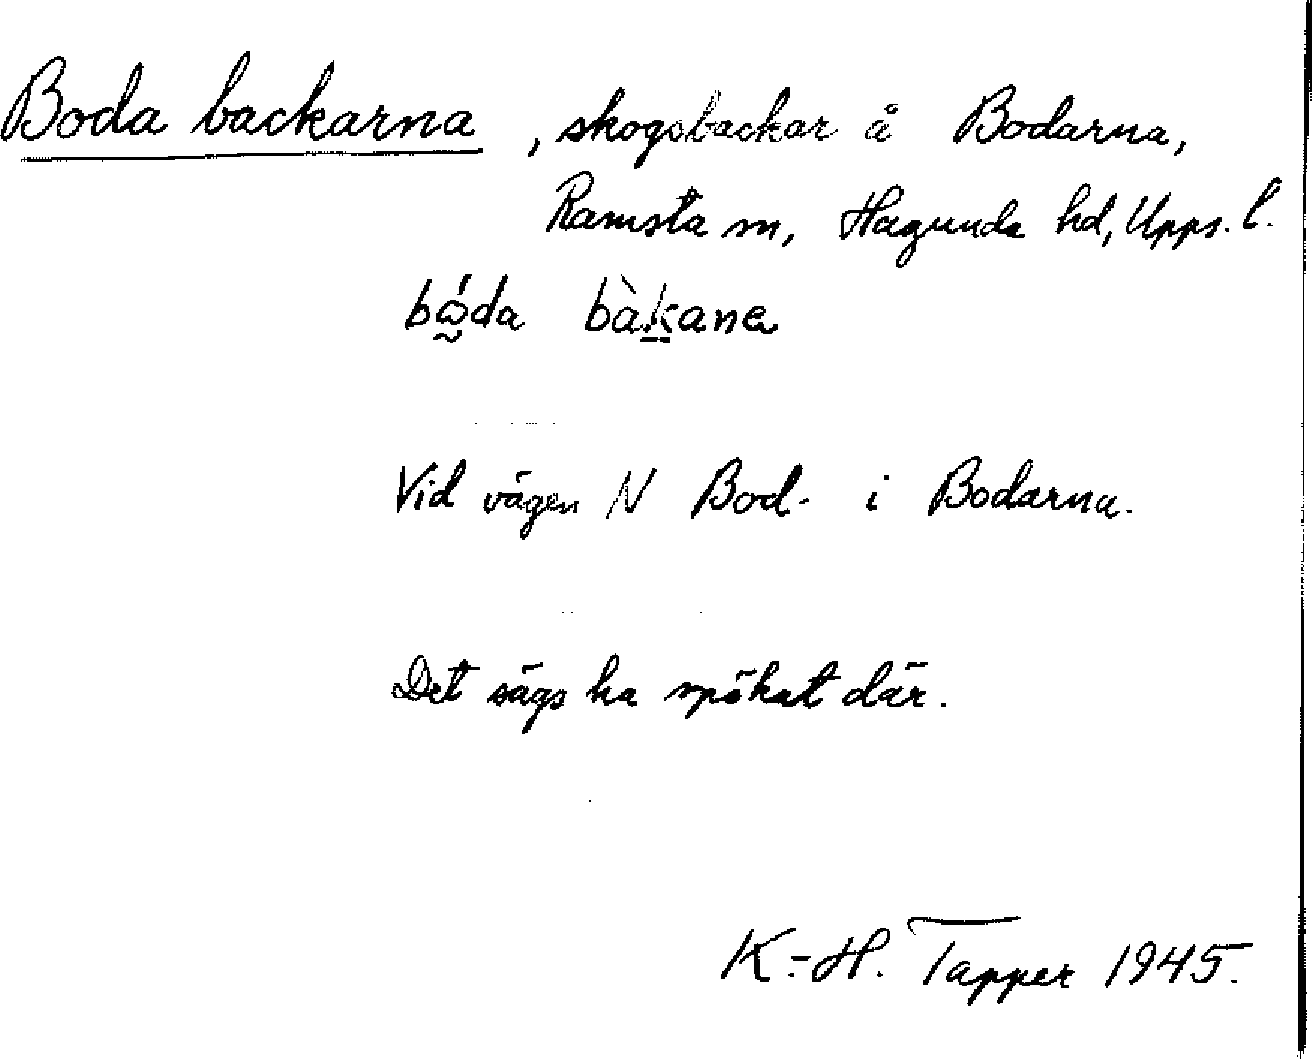 Boda backarna, skogsbackar å Bodarna,
Ramsta sn, Hagunda hd, Upps. l.
bǿda bàkana
Vid vägen N Bod- i Bodarna.
Det sägs ha spökat där.
K.-H. Tapper 1945.